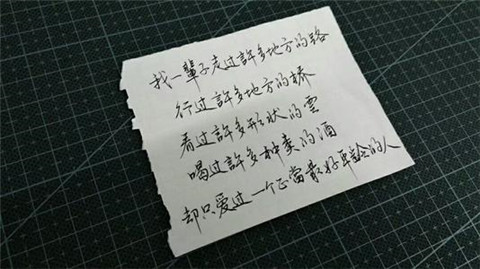 我一輩子走过許多地方的路
行过許多地方的桥
看过許多形状的雲
喝过許多种类的酒
却只爱过一个正當最好年龄的人